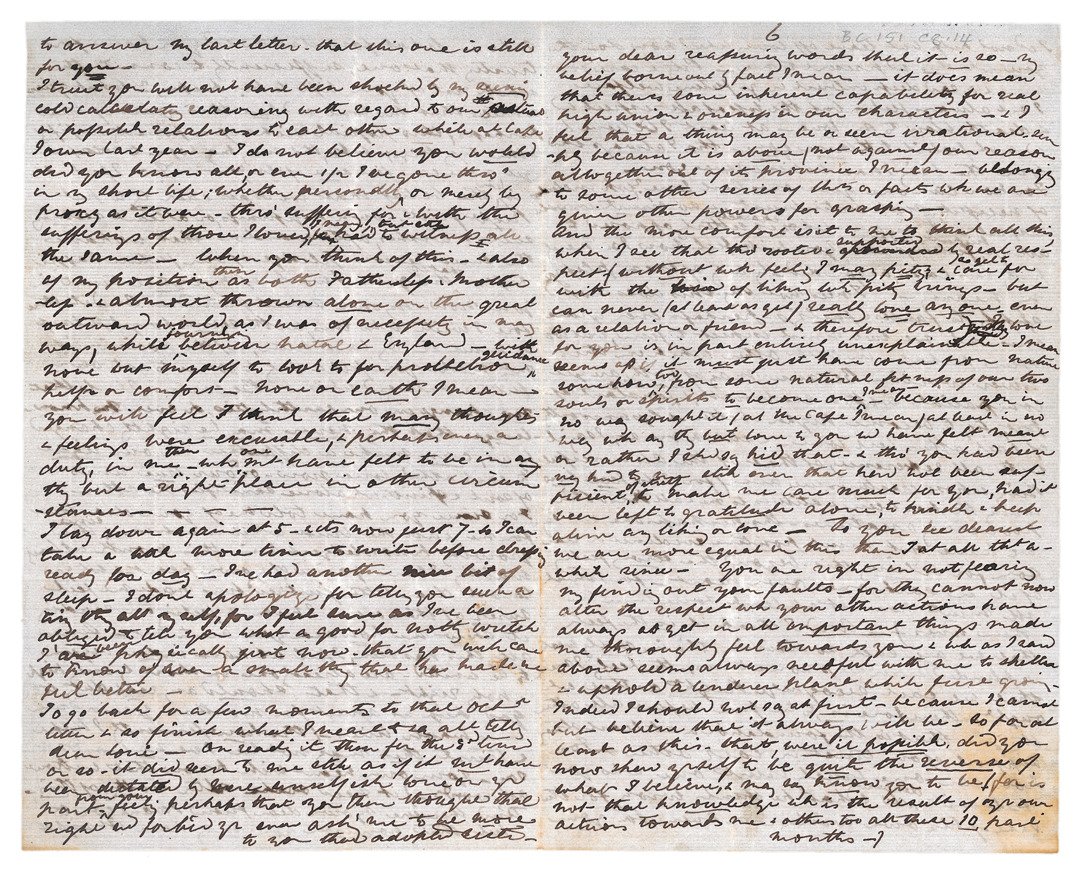 to answer my last letter - that this one is still
for you -
I trust you will not have been shocked by my
cold calculating reasoning with regard to our
or possible relations to each other while at Cape
Town last year - I do not believe you would
did you know all, or even I've gone thro'
in my short life; whether personally, or merely by
proxy as it were - thro' suffering for & with the
sufferings of those I loved had to witness
the same - When you think of this - & also
of my position then as both Fatherless & Mother
less - & almost thrown alone on the great
outward world as I was of necessity in many
ways, while between Natal & England - with
none but myself to look to for protection, guidance
help or comfort - none on earth I mean -
you will feel I think that many thoughts
& feelings were excusable, & perhaps even a
duty, in me then - wh one mt have felt to be in any
thg but a "right" place in other circum
stances -
I lay down again at 5 - its now just 7 - so I can
take a more time to write before dressg
ready for day - I've had another nice bit of
sleep - I don't apologize for tellg you such a
thg all myself, for I feel sure as I've been
obliged to tell you what a good for nothg wretch
I physically just now - that you will care
to know of even a small thg that has made me
feel better -
To go back for a few moments to that Oct
letter & so finish what I meant to say abt tellg
dear love - On readg it then for the 3d time
or so - it did seem to me still as if it mt have
been dictated by unselfish love on yr
part, perhaps that you then thought that
right wd forbid yr ever askg me to be more
to you than adopted sister
6
BC 151 C2.14
your dear reassuring words that it is so - my
belief borne out by fact I mean - it does mean
that theres some inherent capability for real
high union & oneness in our characters - & I
feel that a thing may be or seem irrational, sim
ply because it is above (not against) our reason
altogether out of its province I mean - belongg
to some other series of thgs or facts wh we are
given other powers for grasping -
And the more comfort is it to me to think all this
when I see that the root is supported by real res-
pect (without wh feelg I may pity & care for
with the of likg wh pity brings - but
can never (at least as yet) really love anyone even
as a relation or friend - & therefore trust my love
for you is in part entirely unexplainable I mean
seems as if it must just have come from nature
somehow, too, from some natural fitness of our two
souls or spirits to become one I mean because you in
no way sought it (at the Cape I mean) at least in no
way wh any thg but love to you wd have felt meant
or rather I shd say hid that - & tho' you had been
very kind to me still even that had not been suf-
ficient of itself to make me care much for you, had it
been left to gratitude alone, to kindle & keep
alive any likg or love - So you see dearest
we are more equal in this than I at all tht a-
while since - You are right in not fearing
my findg out your faults - for they cannot now
alter the respect wh your other actions have
always as yet in all important things made
me thoroughly feel towards you & wh as I said
above seems always needful with me to shelter
& uphold a tenderer plant while first growg -
Indeed I should not say at first - because I cannot
but believe that it always will be - so far at
least as this - that, were it possible, did you
now shew yrself to be quite the reverse of
what I believe, & may say know you to be (for is
not that knowledge wh is the result of yr own
actions towards me & others too all these 10 past
months -)